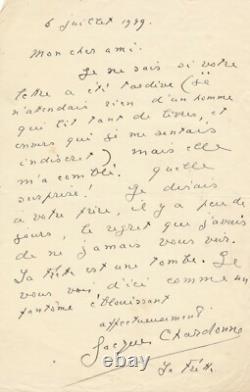 6 juillet 1959.
Mon cher ami.
Je ne sais si votre
lettre a été tardive (je
n'attendais rien d'un homme
qui lit tant de livres, et
envers qui je me sentais
indiscret) mais elle
m'a comblé. Quelle
surprise ! Je disais
à votre frère, il y a peu de
jours, le regret que j'avais
de ne jamais vous voir.
La Frette est une tombe. Je
vous vois d'ici comme un
fantôme éblouissant
affectueusement
Jacques Chardonne
La Frette